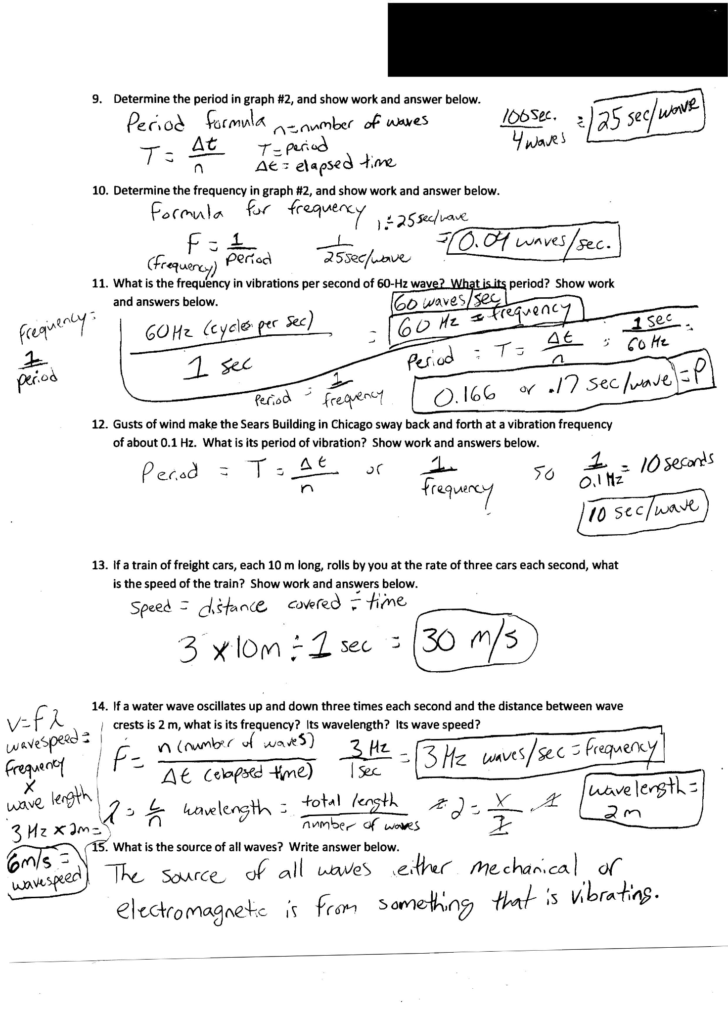 9. Determine the period in graph #2, and show work and answer below.
Period formula n=number of waves
T = Δt/n
T = period
Δt = elapsed time
100 sec. / 4 waves = 25 sec/wave
10. Determine the frequency in graph #2, and show work and answer below.
Formula for frequency
F = 1/period
(frequency)
1 ÷ 25 sec/wave
1 / 25 sec/wave = 0.04 waves/sec.
11. What is the frequency in vibrations per second of 60-Hz wave? What is its period? Show work
and answers below.
Frequency =
1/period
60 Hz (cycles per sec) / 1 sec =
60 waves/sec
60 Hz = frequency
Period = T = Δt/n = 1 sec / 60 Hz =
Period = 1/frequency
0.166 or .17 sec/wave = P
12. Gusts of wind make the Sears Building in Chicago sway back and forth at a vibration frequency
of about 0.1 Hz. What is its period of vibration? Show work and answers below.
Period = T = Δt/n or 1/frequency so 1/0.1 Hz = 10 seconds
10 sec/wave
13. If a train of freight cars, each 10 m long, rolls by you at the rate of three cars each second, what
is the speed of the train? Show work and answers below.
Speed = distance covered ÷ time
3 x 10m ÷ 1 sec = 30 m/s
14. If a water wave oscillates up and down three times each second and the distance between wave
crests is 2 m, what is its frequency? Its wavelength? Its wave speed?
V=fλ
wavespeed =
frequency
x
wave length
3 Hz x 2m =
6m/s =
wavespeed
F = n (number of waves) / Δt (elapsed time)
3 Hz / 1 sec = 3 Hz waves/sec = frequency
λ = L/n wavelength = total length / number of waves
2 = x
wavelength =
2m
15. What is the source of all waves? Write answer below.
The source of all waves either mechanical or
electromagnetic is from something that is vibrating.